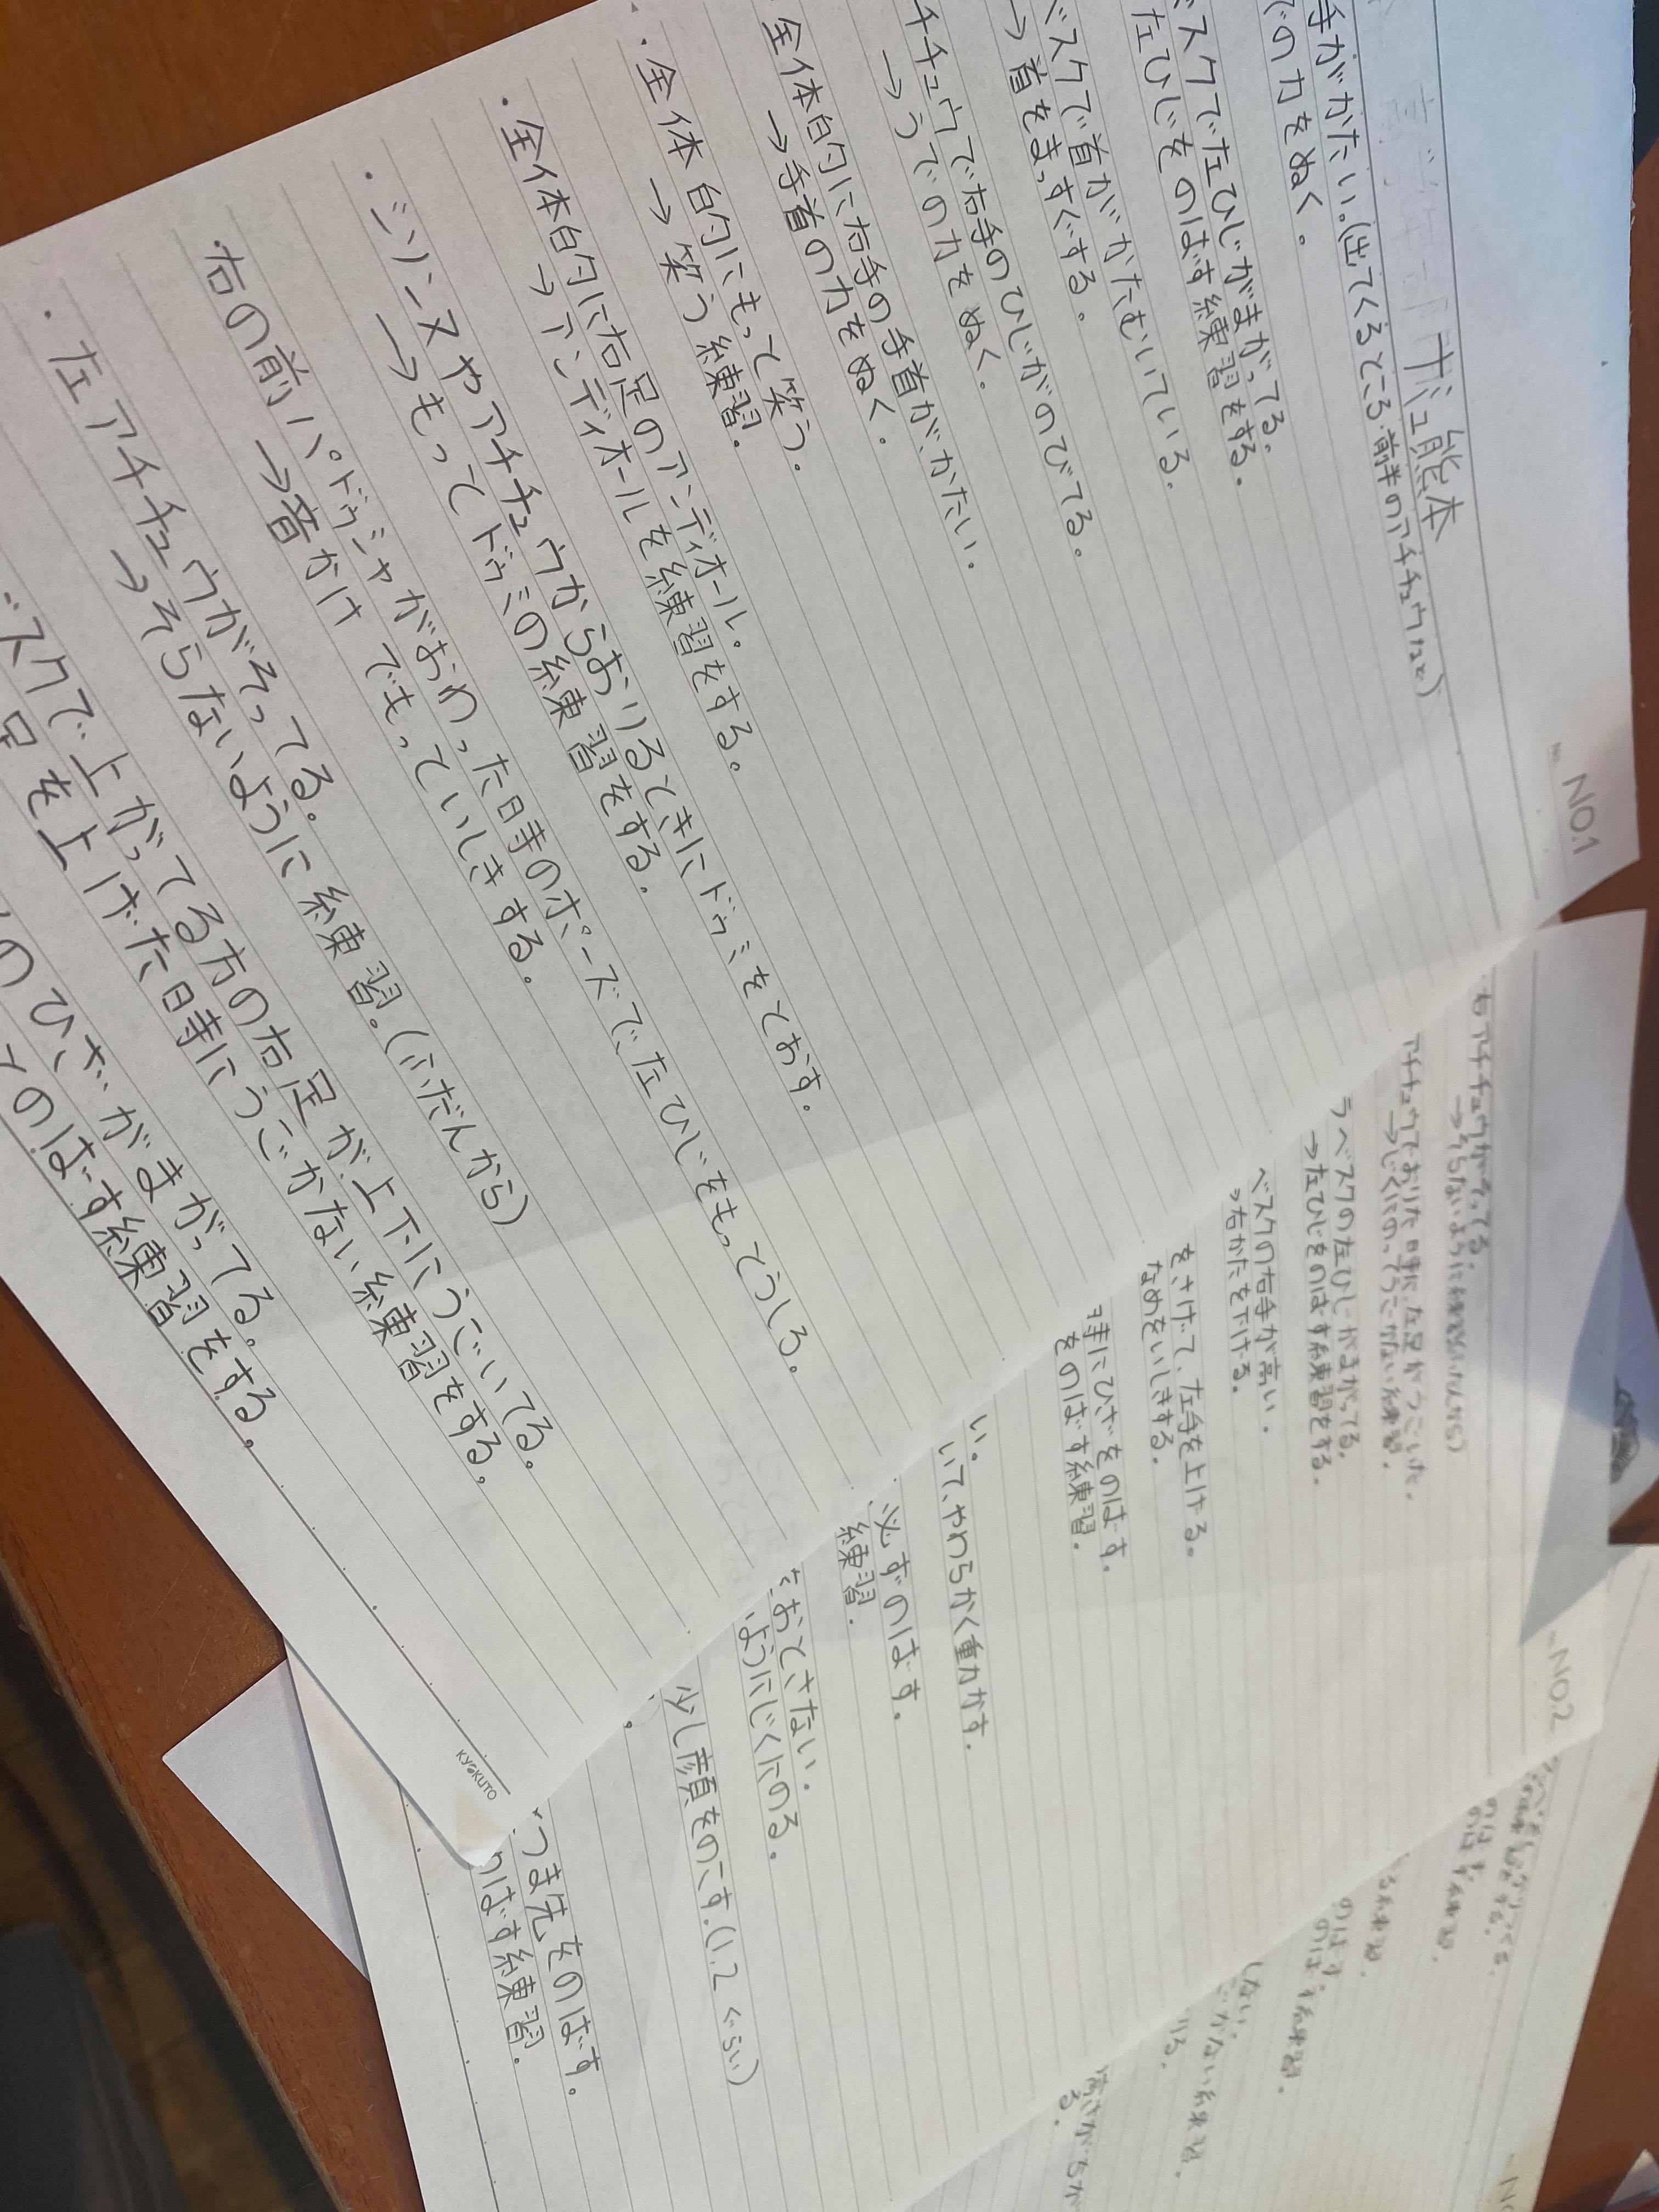 NO.1
ガジュ熊本
手がかたい。(出てくるところ・前半のアチチュウなど)
での力をぬく。
スクで左ひじがまがってる。
左ひじをのばす練習をする。
ベスクで首がかたむいている。
→首をまっすぐする。
チチュウで右手のひじがのびてる。
→うでの力をぬく。
全体的に右手の手首がかたい。
→手首の力をぬく。
・全体的にもって笑う。
→笑う練習。
・全体的に右足のアンディオール。
→アンディオールを練習をする。
・ジリーヌやアチチュウからおりるときにドゥミをとおす。
→もってドゥミの練習をする。
右の前パドゥシャがおわった時のポーズで、左ひじをもっとうしろ。
→音かけでもっていしきする。
・左アチチュウがそってる。
→そらないように練習。(ふだんから)
スクで上がってる方の右足が上下にうごいてる。
足を上げた時にうごかない練習をする。
のひざがまがってる。
てのばす練習をする。
KYOKUTO
NO.2
アチチュウがそってる
→そらないように練習(ふだんから)
アチチュウでおりた時に左足がうごいた。
→じくにのってうごかない練習。
ラベスクの左ひじがまがってる。
→左ひじをのばす練習をする。
ベスクの右手が高い。
→右かたを下げる。
をさげて、左手を上げる。
なめをいしきする。
時にひざをのばす。
をのばす練習。
い。
いて、やわらかく重力かす。
必ずのばす。
練習。
をおとさない。
ようにじくにのる。
少し顔をのこす。(1.2ぐらい)
つま先をのばす。
のばす練習。
のばす
のばす練習。
る練習。
のばす
のばす練習。
しない。
ごかない練習。
いる。
高さがちが
る。